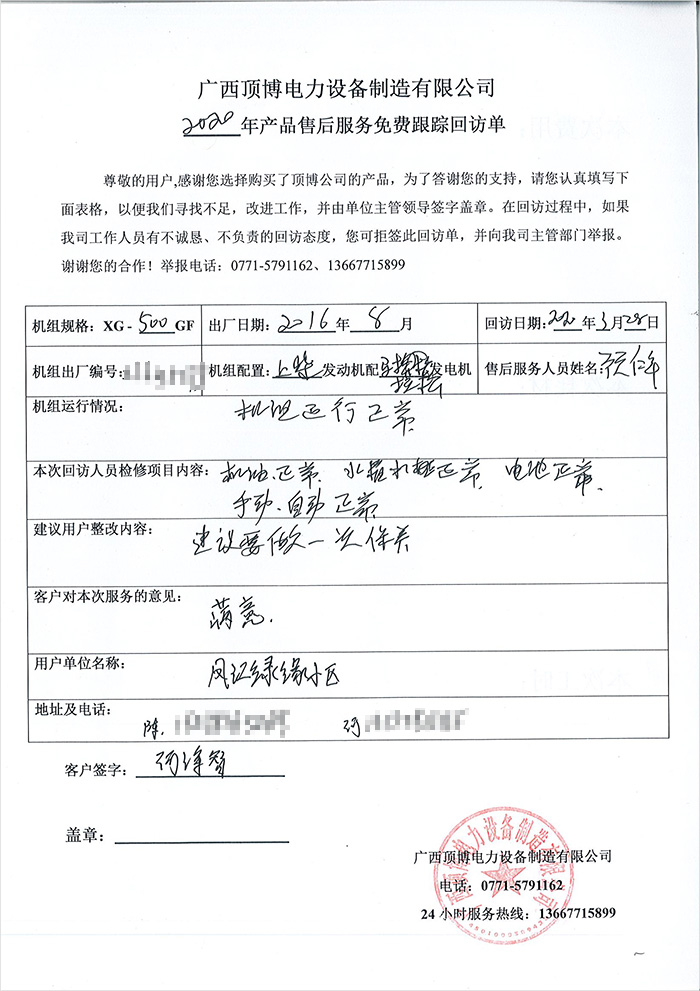 广西顶博电力设备制造有限公司
2020年产品售后服务免费跟踪回访单
尊敬的用户,感谢您选择购买了顶博公司的产品，为了答谢您的支持，请您认真填写下
面表格，以便我们寻找不足，改进工作，并由单位主管领导签字盖章。在回访过程中，如果
我司工作人员有不诚恳、不负责的回访态度，您可拒签此回访单，并向我司主管部门举报。
谢谢您的合作！举报电话：0771-5791162、13667715899
机组规格：XG-500GF 出厂日期：2016年8月 回访日期：2020年3月28日
机组出厂编号: 机组配置：上柴发动机配发电机 售后服务人员姓名:
机组运行情况: 机组运行正常
本次回访人员检修项目内容: 机油、正常、水箱水格正常、电池正常、
手动、自动正常
建议用户整改内容: 建议要做一次保养
客户对本次服务的意见: 满意.
用户单位名称: 凤江绿缘小区
地址及电话: 陈. 何
客户签字：
盖章：
广西顶博电力设备制造有限公司
电话：0771-5791162
24小时服务热线：13667715899